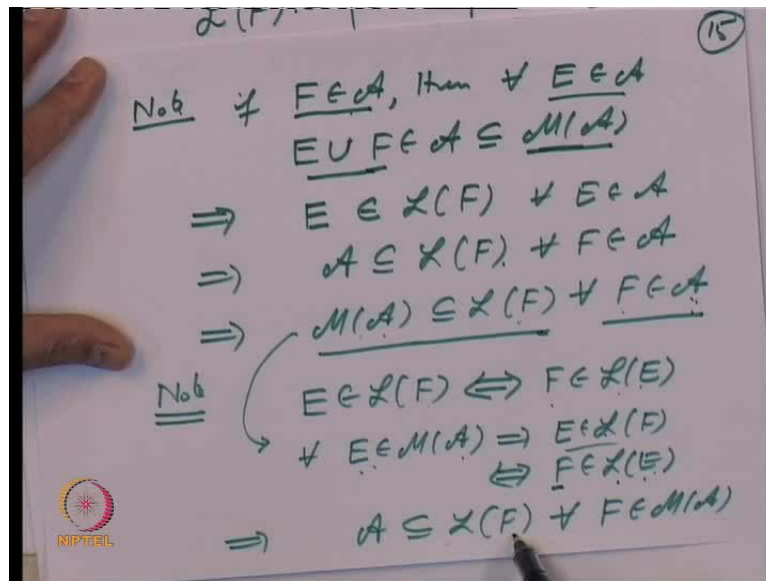 ℒ(F)
15
Note if F ∈ 𝒜, then ∀ E ∈ 𝒜
E ∪ F ∈ 𝒜 ⊆ ℳ(𝒜)
⇒ E ∈ ℒ(F) ∀ E ∈ 𝒜
⇒ 𝒜 ⊆ ℒ(F). ∀ F ∈ 𝒜
⇒ ℳ(𝒜) ⊆ ℒ(F) ∀ F ∈ 𝒜
Note E ∈ ℒ(F) ⇔ F ∈ ℒ(E)
∀ E ∈ ℳ(𝒜) ⇒ E ∈ ℒ(F)
⇔ F ∈ ℒ(E)
⇒ 𝒜 ⊆ ℒ(F) ∀ F ∈ ℳ(𝒜)
NPTEL